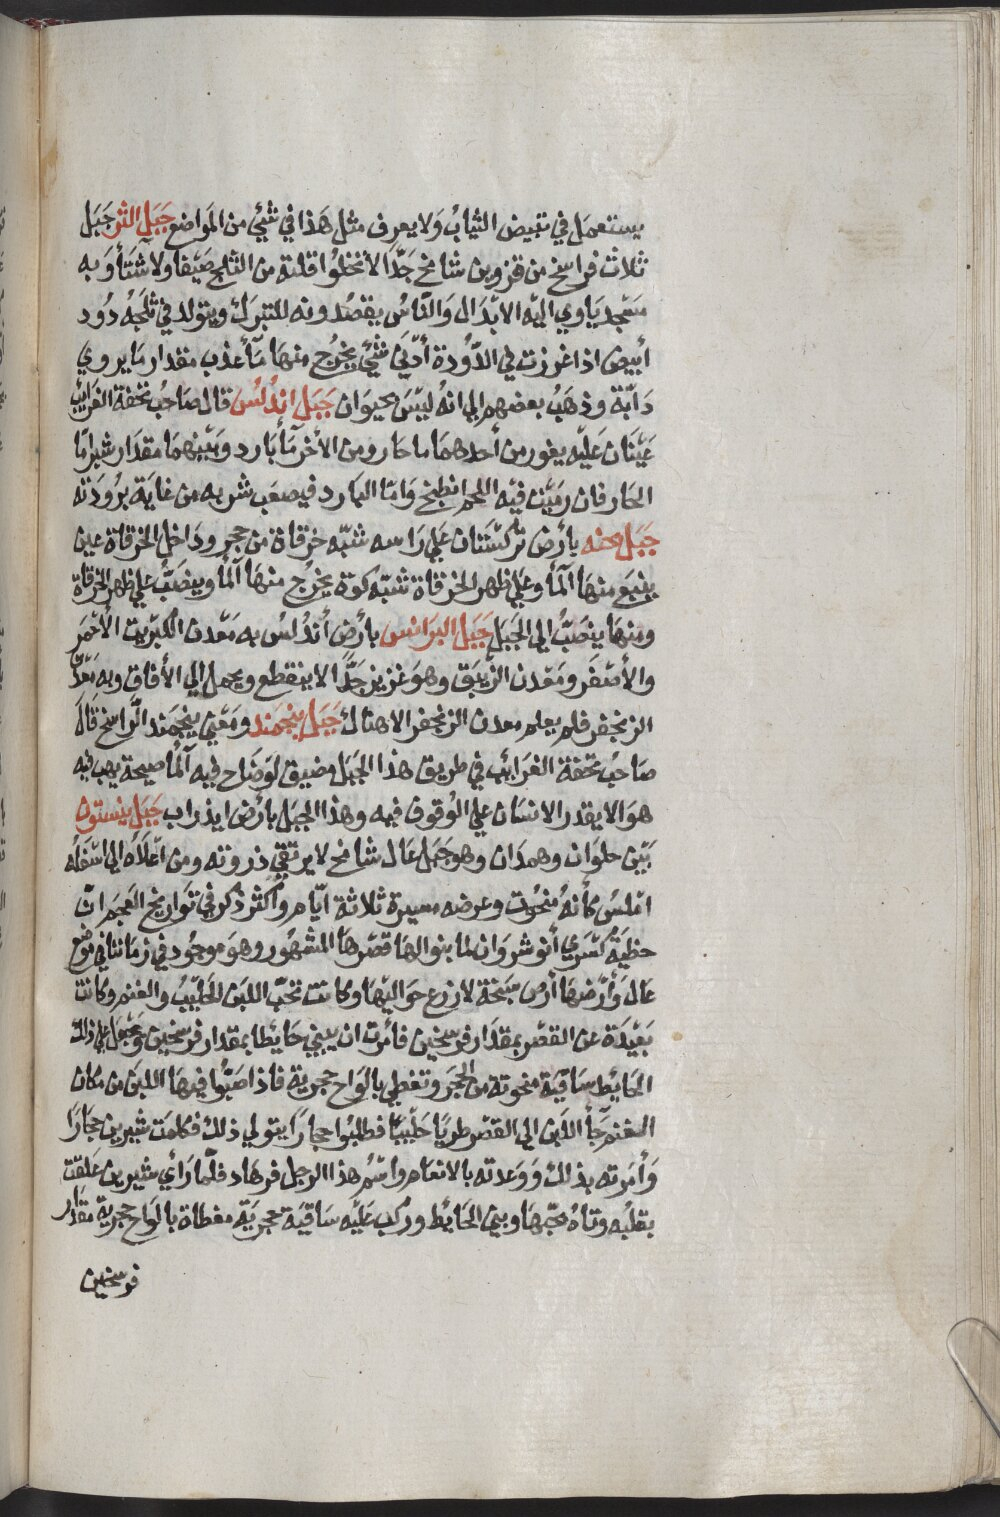 يستعمل في تبيض الثياب ولا يعرف مثل هذا في شئي من المواضع جبل الثر جبل
ثلاث فراسخ من قزوين شامخ جدا لا تخلوا قلته من الثلج صيفا ولا شتأ وبه
مسجد ياوي اليه الابدال والناس يقصدونه للتبرك ويتولد في ثلجه دود
أبيض اذا غرزت في الدودة أدني شئي يخرج منها مآ عذب مقدار ما يروي
دابة وذهب بعضهم الي انه ليس بحيوان جبل اندلس قال صاحب تحفة الغرائب
عينان عليه يفور من أحدهما ما حار ومن الأخر مأ بارد وبينهما مقدار شبر اما
الحار فان رميت فيه اللحم انطبخ واما البارد فيصعب شربه من غاية برودته
جبل بارض تركستان علي راسه شبه خرقاة من حجر وداخل الخرقاة عين
ينبع منها المأ وعلي ظهر الخرقاة شبه كوة يخرج منها المأ وينصب علي ظهر الخرقاة
ومنها ينصب الي الجبل جبل البرانس بأرض أندلس به معدن الكبريت الأحمر
والأصفر ومعدن الزيبق وهو غزيز جدا لا ينقطع ويحمل الي الأفاق وبه معدن
الزنجفر فلم يعلم معدن الزنجفر الا هناك جبل بنجمند ومعني بنجمند الراسخ قال
صاحب تحفة الغرائب في طريق هذا الجبل مضيق لو صاح فيه المأ صيحة يهب فيه
هوا لا يقدر الانسان علي الوقوف فيه وهذا الجبل بأرض ايذراب جبل بنستون
بين حلوان وهمدان وهو جبل عال شامخ لا يرتقي ذروته ومن اعلاه الي اسفله
املس كأنه منحوت وعرضه مسيرة ثلاثة ايام وأكثر ذكر في تواريخ العجم ان
حظية كسري أنوشروان لما بنوا لها قصرها المشهور وهو موجود في زماننا في موضع
عال وأرضها أرض سبخة لا زرع حواليها وكانت تحب اللبن الحليب والغنم وكانت
بعيدة عن القصر بمقدار فرسخين فأمرت ان يبني حايطا بمقدار فرسخين ويجعل علي ذلك
الحايط ساقية منحوتة من الحجر وتغطي بالواح حجرية فاذا صبوا فيها اللبن من مكان
الغنم جأ اللبن الي القصر طريا حليبا فطلبوا حجارا يتولي ذلك فكلمت شيرين حجارا
وأمرته بذلك ووعدته بالانعام واسم هذا الرجل فرهاد فلما رأي شيرين علقت
بقلبه وتاه بحبها وبني الحائط وركب عليه ساقية حجرية مغطاة بالواح حجرية مقدار
فرسخين